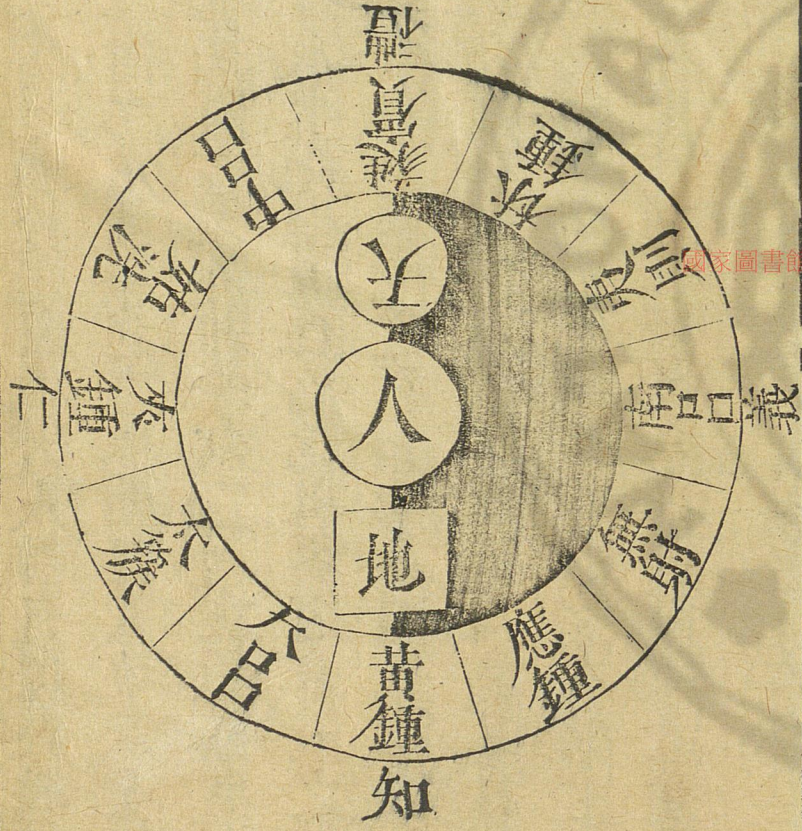 禮
蕤賓
林鍾
夷則
南呂
義
無射
應鍾
黃鍾
知
大呂
太簇
夾鍾
仁
姑洗
中呂
天
人
地
國家圖書館